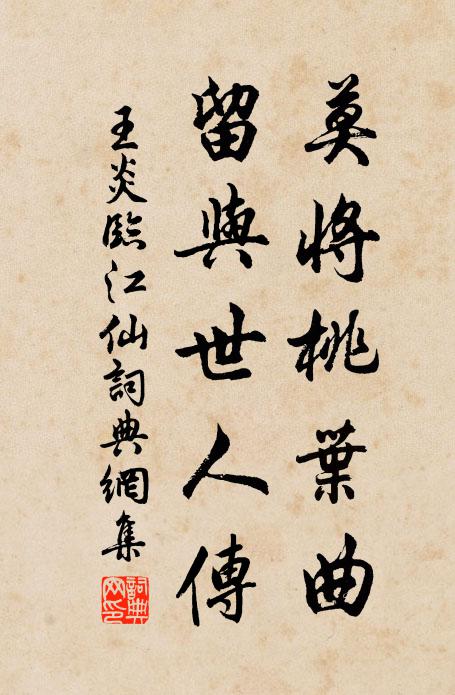 莫將桃葉曲
留與世人傳
王炎臨江仙詞典網集
詞典網印